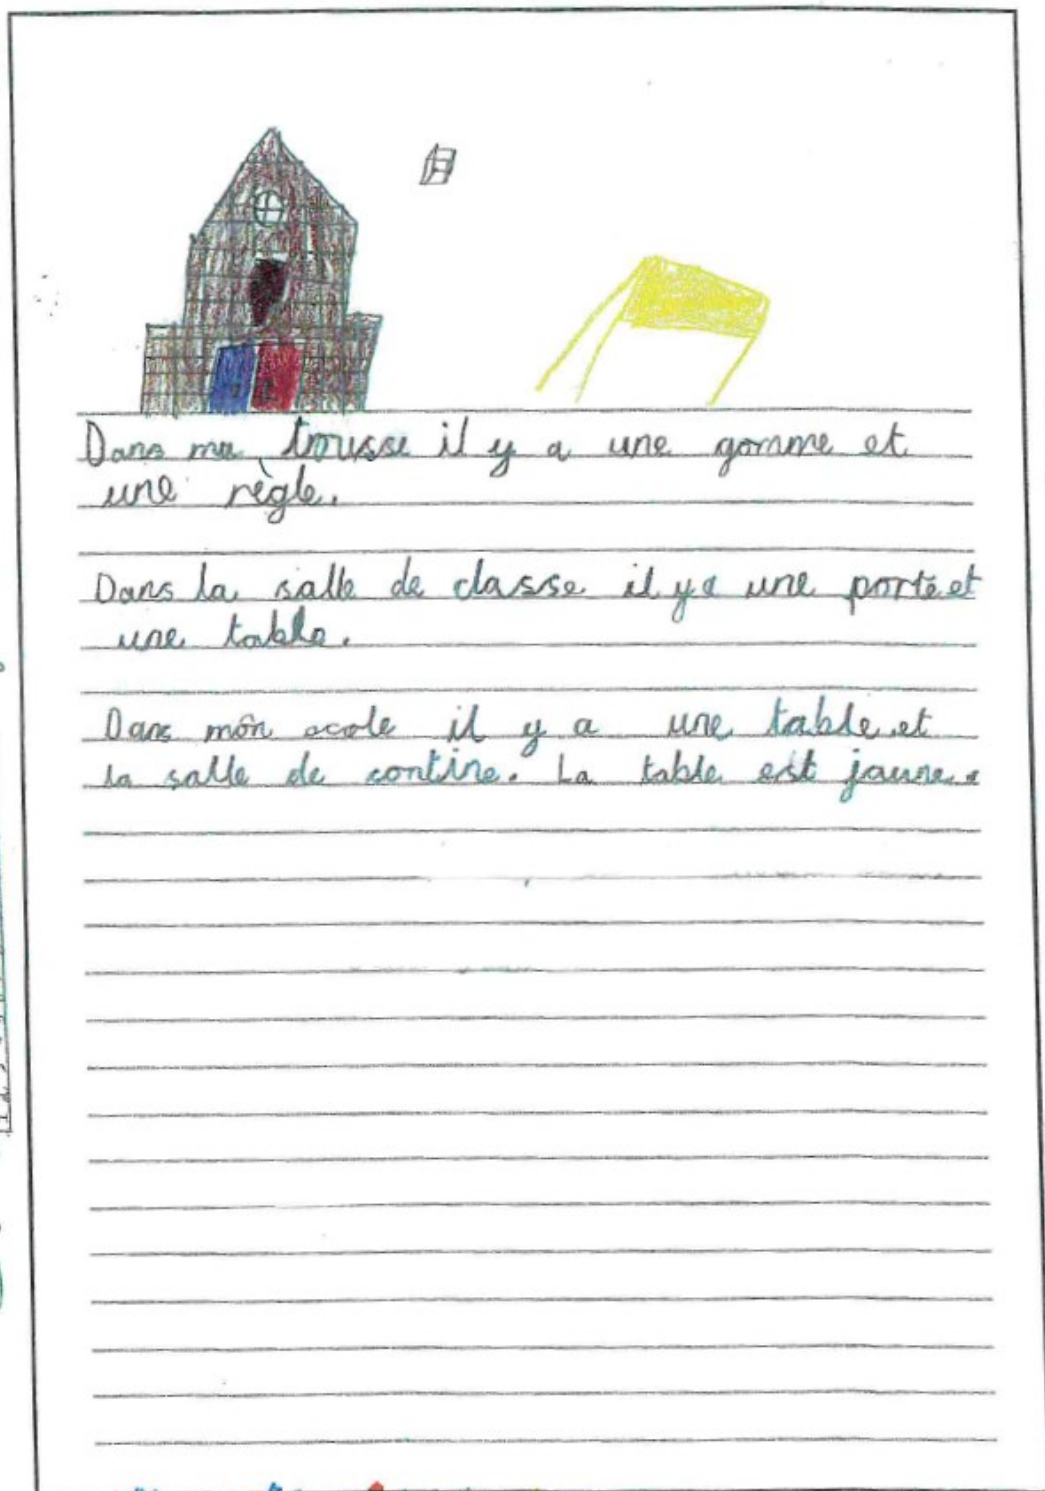 Dans ma trousse il y a une gomme et
une règle.
Dans la salle de classe il y a une porte et
une table.
Dans môn ecole il y a une table et
la salle de contine. La table est jaune.